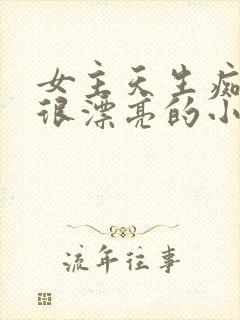 女主天生痴
很漂亮的小
流年往事